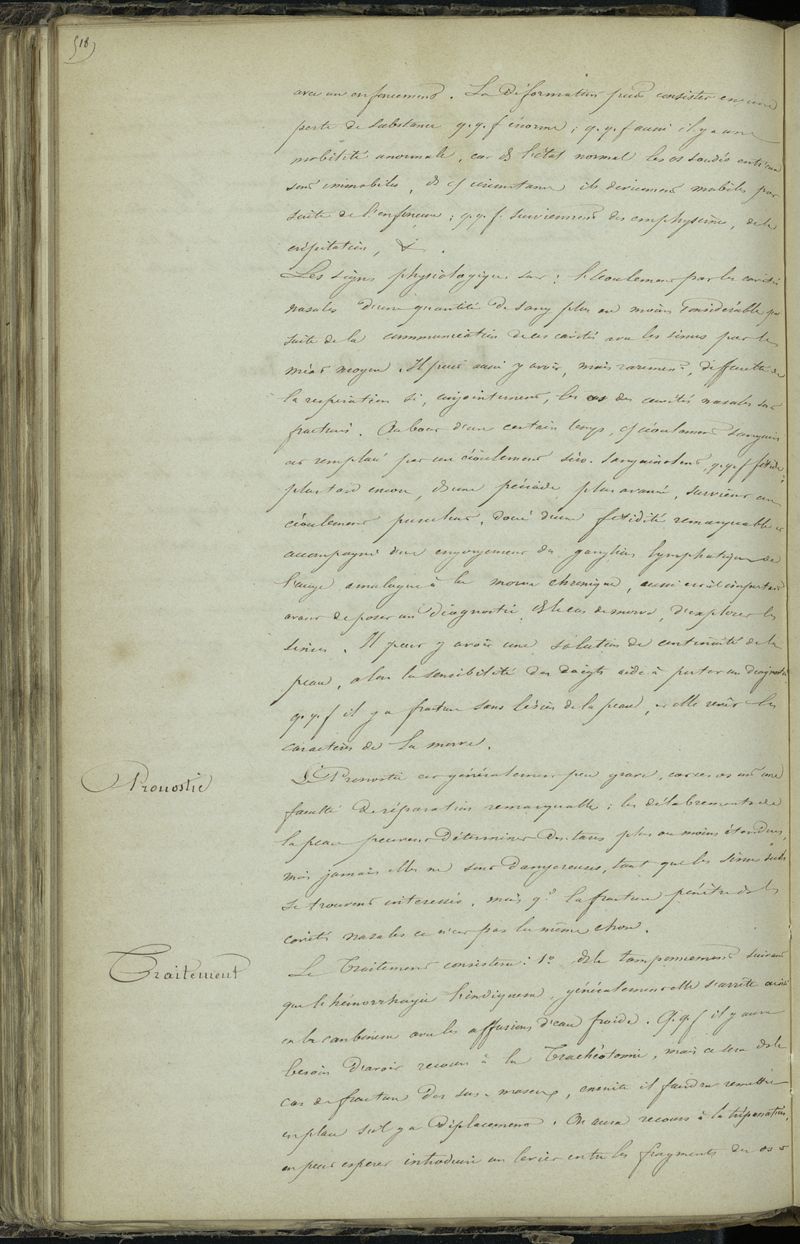 (18)
avec un enfoncement. La Déformation peut consister en une
perte de substance q.q.f énorme ; q.q.f aussi il y a une
mobilité anormale, car ds l'état normal les os soudés entr'eux
sont immobiles, ds cf circonstance ils deviennent mobiles par
suite de l'enfonçure ; q.q.f. surviennent des emphysèmes, de la
crépitation, &.
Les signes physiologiques sont : l'écoulement par les cavités
nasales d'une quantité de sang plus ou moins considérable par
suite de la communication de ces cavités avec les sinus par le
méat moyen. Il peut aussi y avoir, mais rarement, difficulté de
la respiration si, conjointement, les os des cavités nasales sont
fracturés. Au bout d'un certain temps, cf écoulement sanguin
est remplacé par un écoulement séro-sanguinolent, q.q.f fétide ;
plus tard encore, ds une période plus avancée, survient un
écoulement purulent, doué d'une fétidité remarquable et
accompagné d'un engorgement des ganglions lymphatiques de
l'auge analogue à la morve chronique, aussi est-il important
avant de poser un diagnostic ds le cas de morve, d'explorer les
sinus. Il peut y avoir une solution de continuité de la
peau, alors la sensibilité des doigts aide à porter un diagnostic
q.q.f il y a fracture sans lésion de la peau, et elle revêt les
caractères de la morve.
Pronostic
Le Pronostic est généralement peu grave, car ces os ont une
faculté de réparation remarquable ; les délabrements de
la peau peuvent déterminer des tares plus ou moins étendues,
mais jamais elles ne sont dangereuses, tant que les sinus seuls
se trouvent intéressés, mais qd la fracture pénètre ds les
cavités nasales ce n'est pas la même chose.
Traitement
Le Traitement consistera : 1º ds le tamponnement suivant
que l'hémorrhagie l'indiquera, généralement elle s'arrête ainsi
en le combinant avec les affusions d'eau froide. Q.q.f il y aura
besoin d'avoir recours à la Trachéotomie, mais ce sera ds le
cas de fracture des sus-naseaux, ensuite il faudra remettre
en place s'il y a déplacement. On aura recours à la trépanation,
on peut espérer introduire un levier entre les fragments des os et